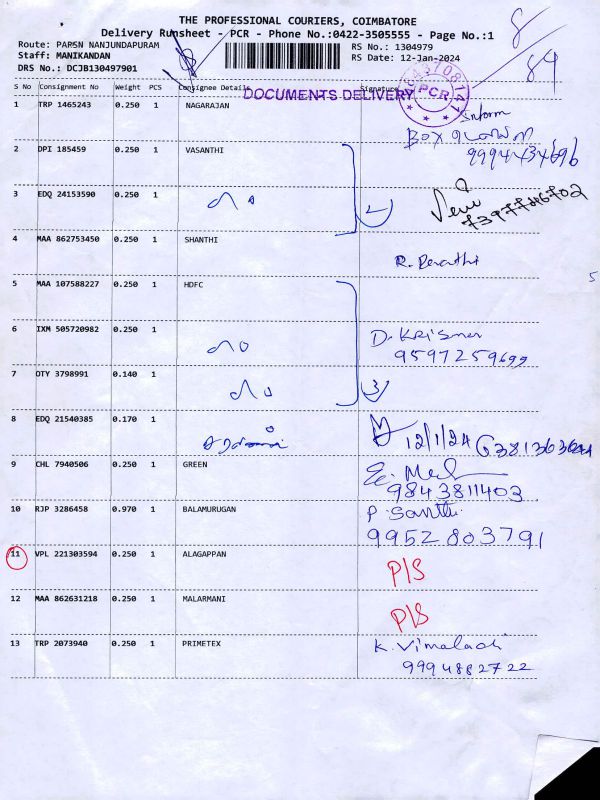 THE PROFESSIONAL COURIERS, COIMBATORE
Delivery Runsheet - PCR - Phone No.:0422-3505555 - Page No.:1
Route: PARSN NANJUNDAPURAM
RS No.: 1304979
8
Staff: MANIKANDAN
RS Date: 12-Jan-2024
84
DRS No.: DCJB130497901
S No Consignment No Weight PCS Consignee Details Signature
DOCUMENTS DELIVERY
PCR
1 TRP 1465243 0.250 1 NAGARAJAN
Inform
Box
2 DPI 185459 0.250 1 VASANTHI
3 EDQ 24153590 0.250 1
2
4 MAA 862753450 0.250 1 SHANTHI
5
5 MAA 107588227 0.250 1 HDFC
6 IXM 505720982 0.250 1
9597259699
7 OTY 3798991 0.140 1
3
8 EDQ 21540385 0.170 1
12/1/24
9 CHL 7940506 0.250 1 GREEN
9843811403
10 RJP 3286458 0.970 1 BALAMURUGAN
P. Santhi
9952803791
11 VPL 221303594 0.250 1 ALAGAPPAN
P/S
12 MAA 862631218 0.250 1 MALARMANI
P/S
13 TRP 2073940 0.250 1 PRIMETEX
K. Vimaladi
9994882722